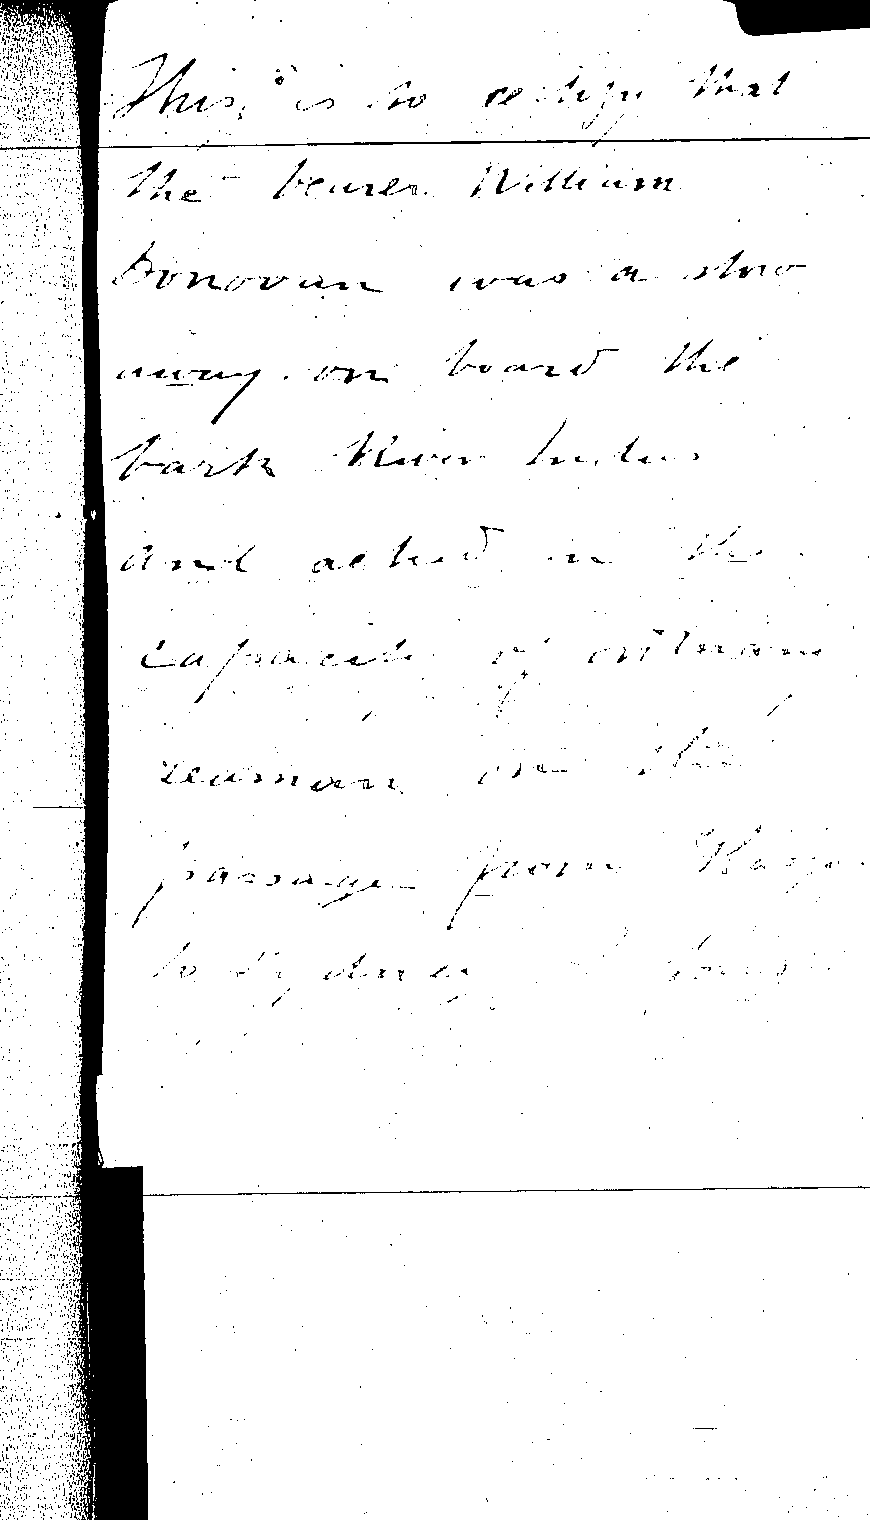 This is to certify that
the bearer William
Donovan was a stow
away on board the
bark River Indus
and acted in the
capacity of ordinary
seaman on the
passage from
to Sydney